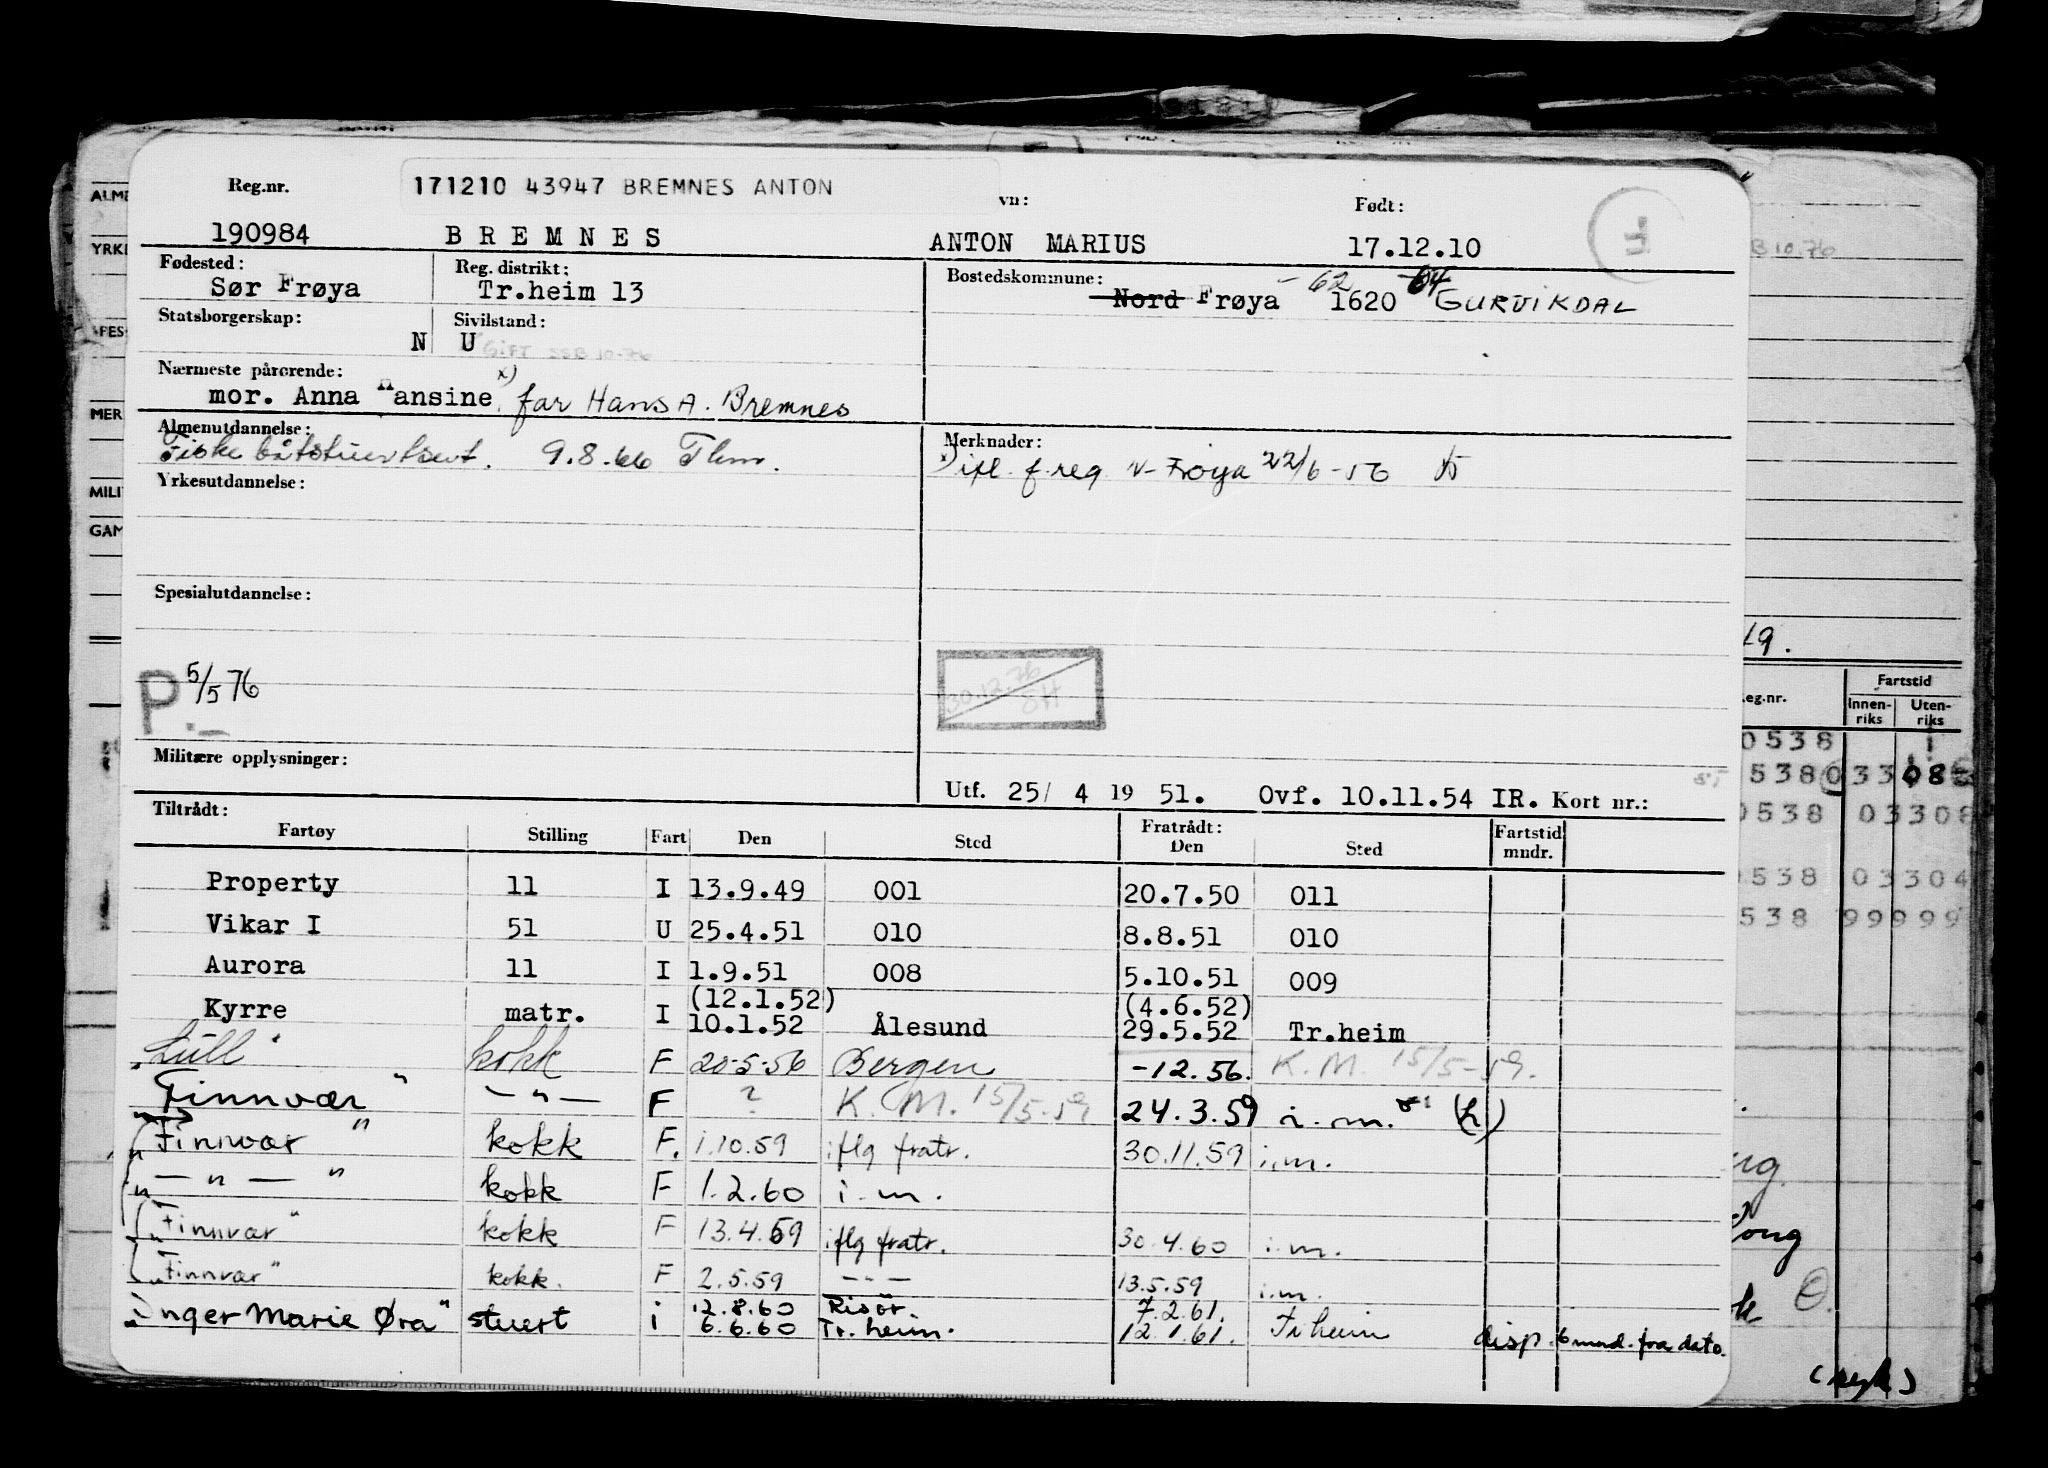 Reg.nr. 171210 43947 BREMNES ANTON vn: Født:
190984 BREMNES ANTON MARIUS 17.12.10
Fødested: Reg. distrikt: Bostedskommune: -62 -64
Sør Frøya Tr.heim 13 Nord Frøya 1620 GURVIKDAL
Statsborgerskap: N Sivilstand: U Gift SSB 10-76
Nærmeste pårørende: x)
mor. Anna Hansine, far Hans A. Bremnes
Almenutdannelse: Merknader:
Fiskebåtstuertsert. 9.8.66 Thm. x) ifl. f.reg N-Frøya 22/6-56
Yrkesutdannelse:
Spesialutdannelse:
P 5/5 76 30.12.76
Militære opplysninger:
Utf. 25/ 4 19 51. Ovf. 10.11.54 IR. Kort nr.:
Tiltrådt: Fratrådt: Fartstid
Fartøy Stilling Fart Den Sted Den Sted mndr.
Property 11 I 13.9.49 001 20.7.50 011
Vikar I 51 U 25.4.51 010 8.8.51 010
Aurora 11 I 1.9.51 008 5.10.51 009
Kyrre matr. I (12.1.52) 10.1.52 Ålesund (4.6.52) 29.5.52 Tr.heim
"Lull" kokk F 20-5-56 Bergen -12.56. K.M. 15/5-59.
"Finnvær" — " — F ? K.M. 15/5-59 24.3.59 i.m.
"Finnvær" kokk F. 1.10.59 iflg fratr. 30.11.59 i.m.
" — " — " kokk F 1.2.60 i.m.
"Finnvær" kokk F 13.4.59 iflg fratr. 30.4.60 i.m.
"Finnvær" kokk. F 2.5.59 — " — 13.5.59 i.m.
"Inger Marie Øra" stuert i 12.8.60 Risør. 7.2.61.
6.6.60 Tr.heim. 12.1.61. Tr heim disp. 6 mnd. fra dato.
ALME
YRKE
SPES
MER
MILI
GAM
B 10.76
19.
eg.nr. Fartstid
Innen-riks Uten-riks
0538
5380 33 08
0538 03308
538 03304
538 99999